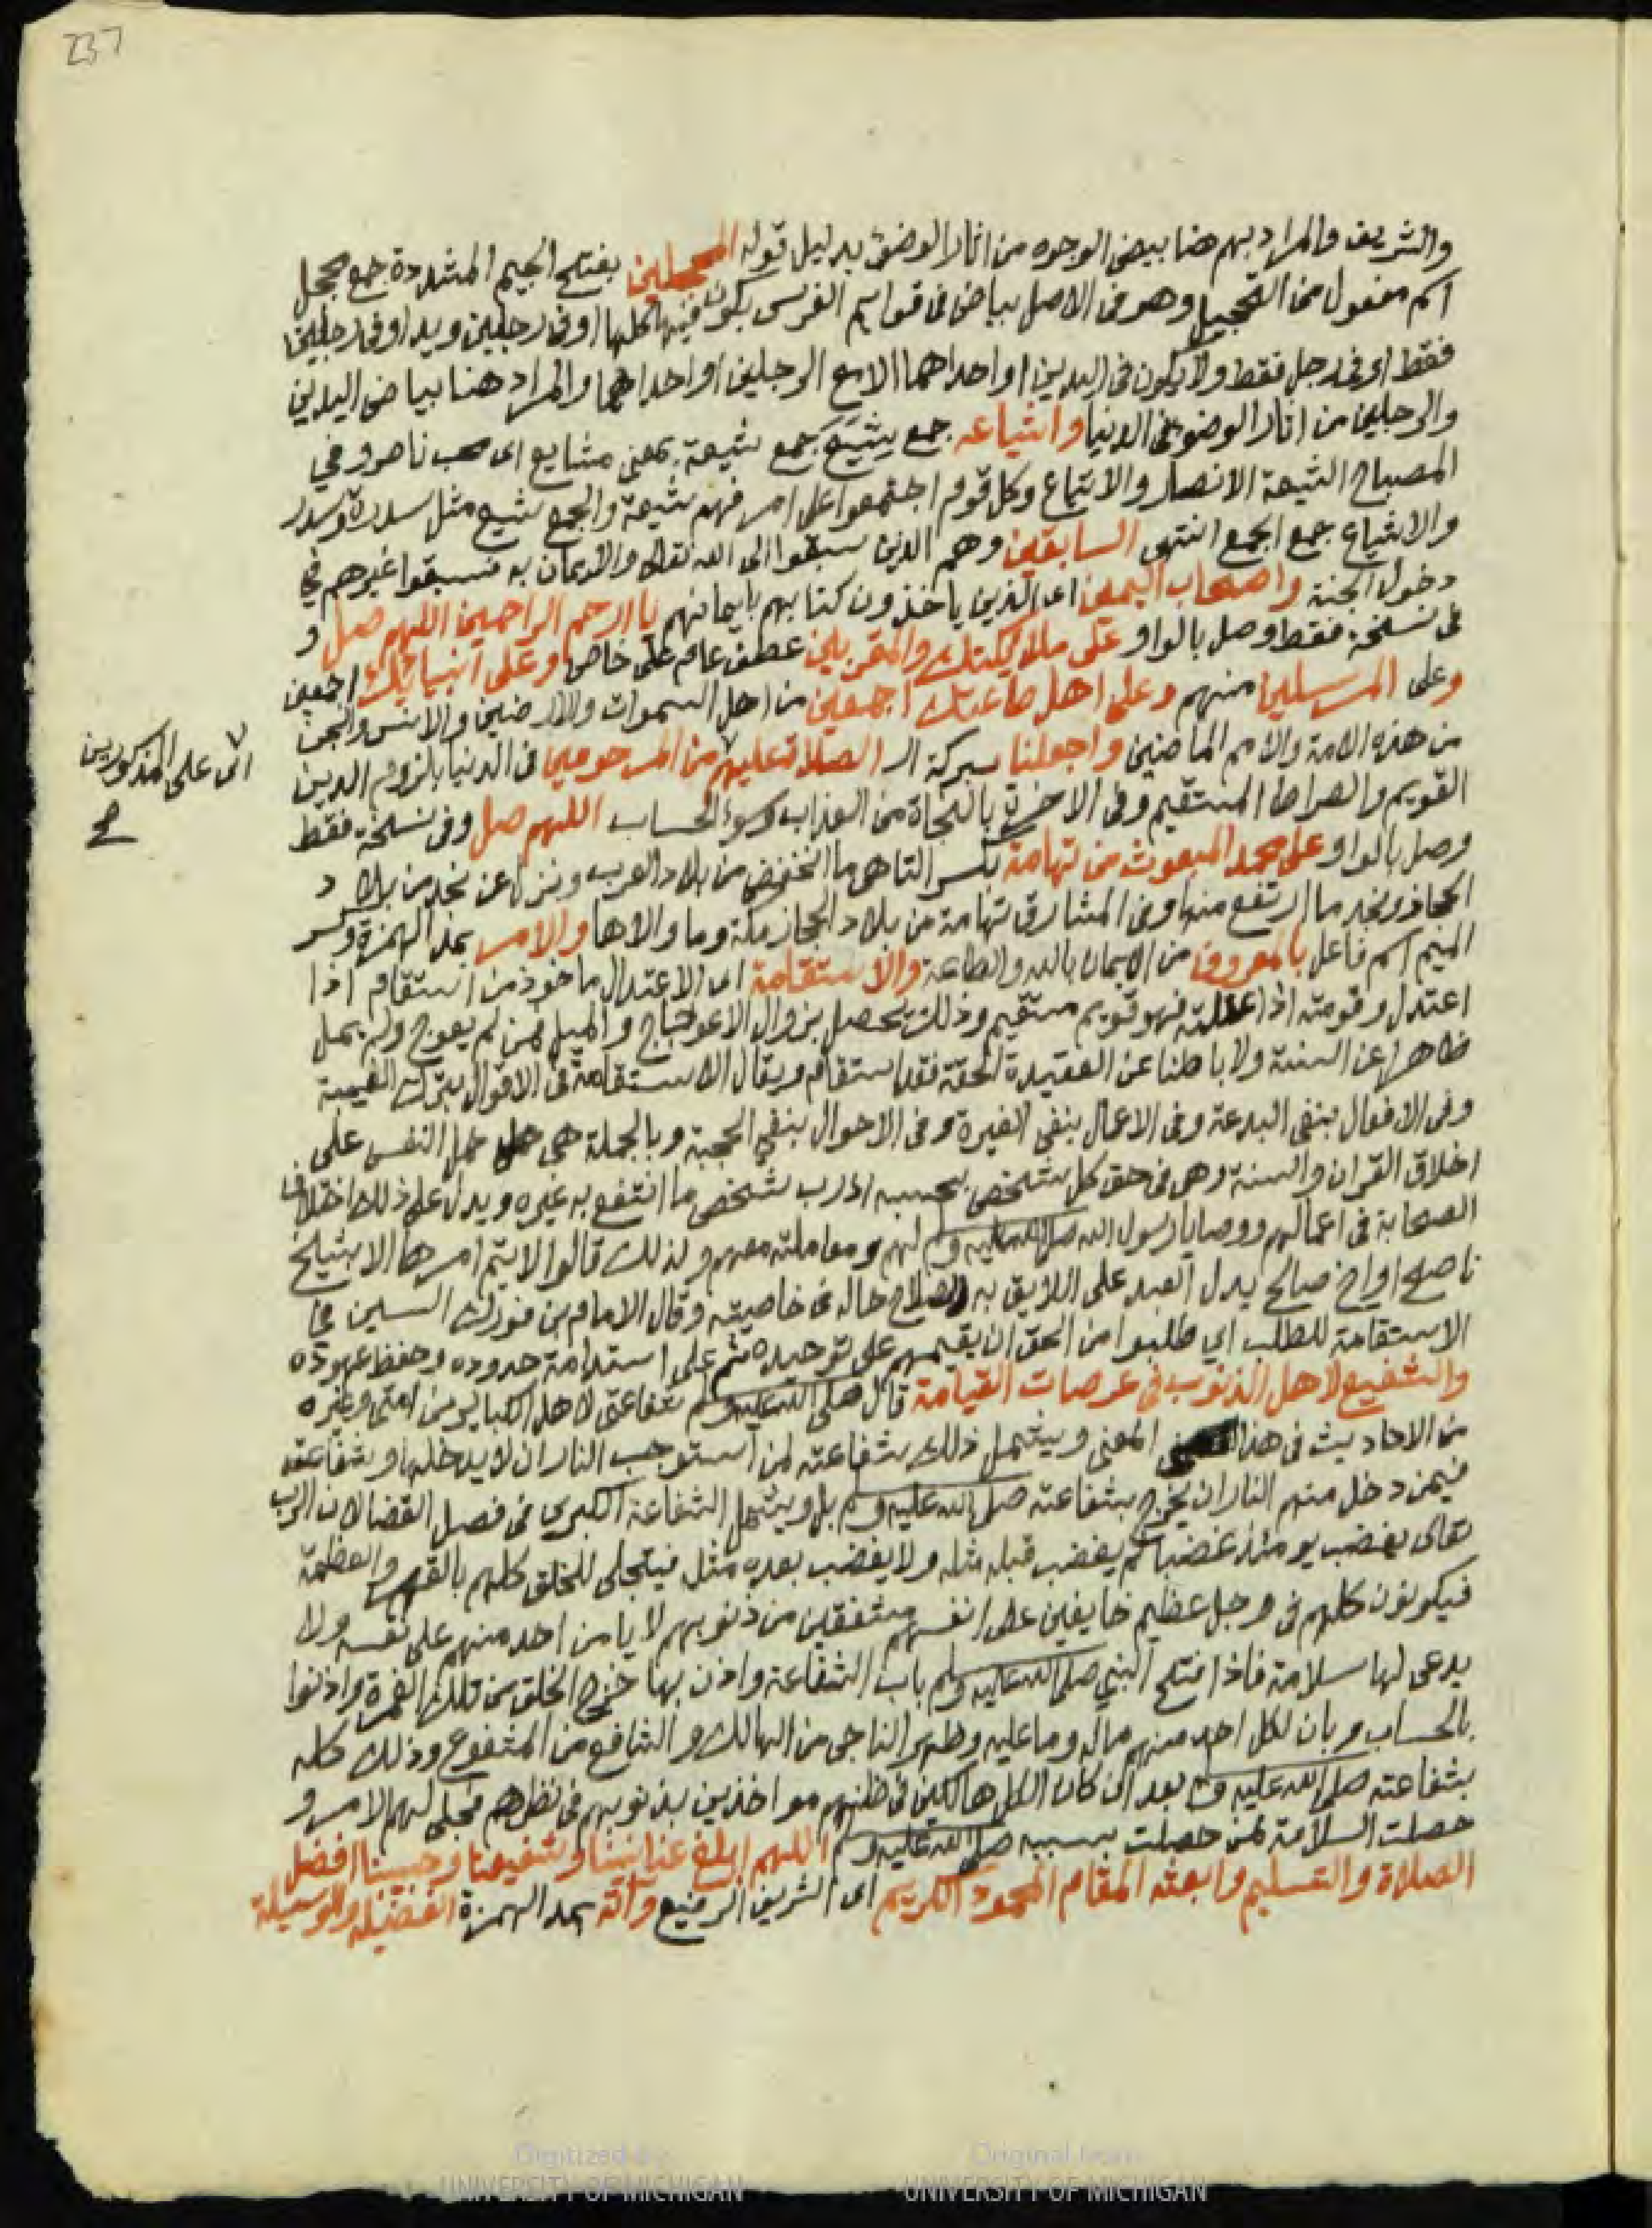 237
والشريف والمراد بهم هنا بيض الوجوه من اثار الوضوء بدليل قوله المحجلين بفتح الجيم المشددة جمع محجل
اسم مفعول من التحجيل وهو في الاصل بياض في قوايم الفرس يكون فيها كلها او في رجلين ويد او في رجلين
فقط او في رجل فقط ولا يكون في اليدين او احداهما الا مع الرجلين او احداهما والمراد هنا بياض اليدين
والرجلين من اثار الوضوء في الدنيا واشياعه جمع شيع جمع شيعة بمعنى مشايع اى محب ناصر وفي
المصباح الشيعة الانصار والاتباع وكل قوم اجتمعوا على امر فهم شيعة والجمع شيع مثل سدرة وسدر
والاشياع جمع الجمع انتهى السابقين وهم الذين سبقوا الى الله تعالى والايمان به فسبقوا غيرهم في
دخول الجنة واصحاب اليمين اى الذين ياخذون كتابهم بايمانهم يا ارحم الراحمين اللهم صل و
في نسخة فقط وصل بالواو على ملائكتك والمقربين عطف عام على خاص وعلى انبيائك اجمعين
وعلى المرسلين منهم وعلى اهل طاعتك اجمعين من اهل السموات والارضين والانس والجن
من هذه الامة والامم الماضين واجعلنا ببركة الـ الصلاة عليهم من المرحومين في الدنيا بلزوم الدين
اى على المذكورين
القويم والصراط المستقيم وفي الاخرة بالنجاة من العذاب وسوء الحساب اللهم صل وفي نسخة فقط
وصل بالواو على محمد المبعوث من تهامة بكسر التا هي ما انخفض من بلاد العرب ونزل عن نجد من بلاد
الحجاز ونجد ما ارتفع منها وفي المشارق تهامة من بلاد الحجاز مكة وما والاها والامر بمد الهمزة وكسر
الميم اسم فاعل بالمعروف من الايمان بالله والطاعة والاستقامة اى الاعتدال ماخوذ من استقام اذا
اعتدل وقومته اذا عدلته فهو قويم مستقيم وذلك يحصل بزوال الاعوجاج والميل فمن لم يعوج ولم يمل
ظاهرا عن السنة ولا باطنا عن العقيدة الحقة فقد استقام ويقال الاستقامة في الاقوال بترك الغيبة
وفي الافعال بنفي البدعة وفي الاعمال بنفي الفترة وفي الاحوال بنفي الحجبة وبالجملة هي حمل النفس على
اخلاق القران والسنة وهى في حق كل شخص بحسبه اذ رب شخص ما انتفع به غيره ويدل على ذلك اختلاف
الصحابة في اعمالهم ووصايا رسول الله صلى الله عليه وسلم لهم ومعاملته معهم ولذلك قالوا لا يتم امرها الا بشيخ
ناصح او اخ صالح يدل العبد على اللايق به لصلاح حاله في خاصيته وقال الامام بن فورك السين في
الاستقامة للطلب اي طلبوا من الحق ان يقيمهم على توحيده ثم على استدامة حدوده وحفظ عهوده
والشفيع لاهل الذنوب في عرصات القيامة قال صلى الله عليه وسلم شفاعتى لاهل الكباير من امتى وغيره
من الاحاديث في هذا المعنى ويشمل ذلك شفاعته لمن استوجب النار ان لا يدخلها وشفاعته
فيمن دخل منهم النار ان يخرج بشفاعته صلى الله عليه وسلم بل ويشمل الشفاعة الكبرى في فصل القضا لان الرب
تعالى يغضب يومئذ غضبا لم يغضب قبله مثله ولا يغضب بعده مثله فيتجلى للخلق كلهم بالقهر والعظمة
فيكونون كلهم في وجل عظيم خايفين على انفسهم مشفقين من ذنوبهم لا يامن احد منهم على نفسه ولا
يدعى لها سلامة فاذا افتتح النبي صلى الله عليه وسلم باب الشفاعة واذن بها خرج الخلق من تلك الغمرة واذنوا
بالحساب وبان لكل احد منهم ماله وما عليه وظهر الناجى من الهالك والشافع من المشفوع وذلك كله
بشفاعته صلى الله عليه وسلم بعد ان كان الكل هالكين في ظنهم مواخذين بذنوبهم في نظرهم فجلى لهم الامر و
حصلت السلامة لمن حصلت بسببه صلى الله عليه وسلم اللهم ابلغ عنا نبينا وشفيعنا وحبيبنا افضل
الصلاة والتسليم وابعثه المقام المحمود الكريم اى الشريف الرفيع واته بمد الهمزة الفضيلة والوسيلة